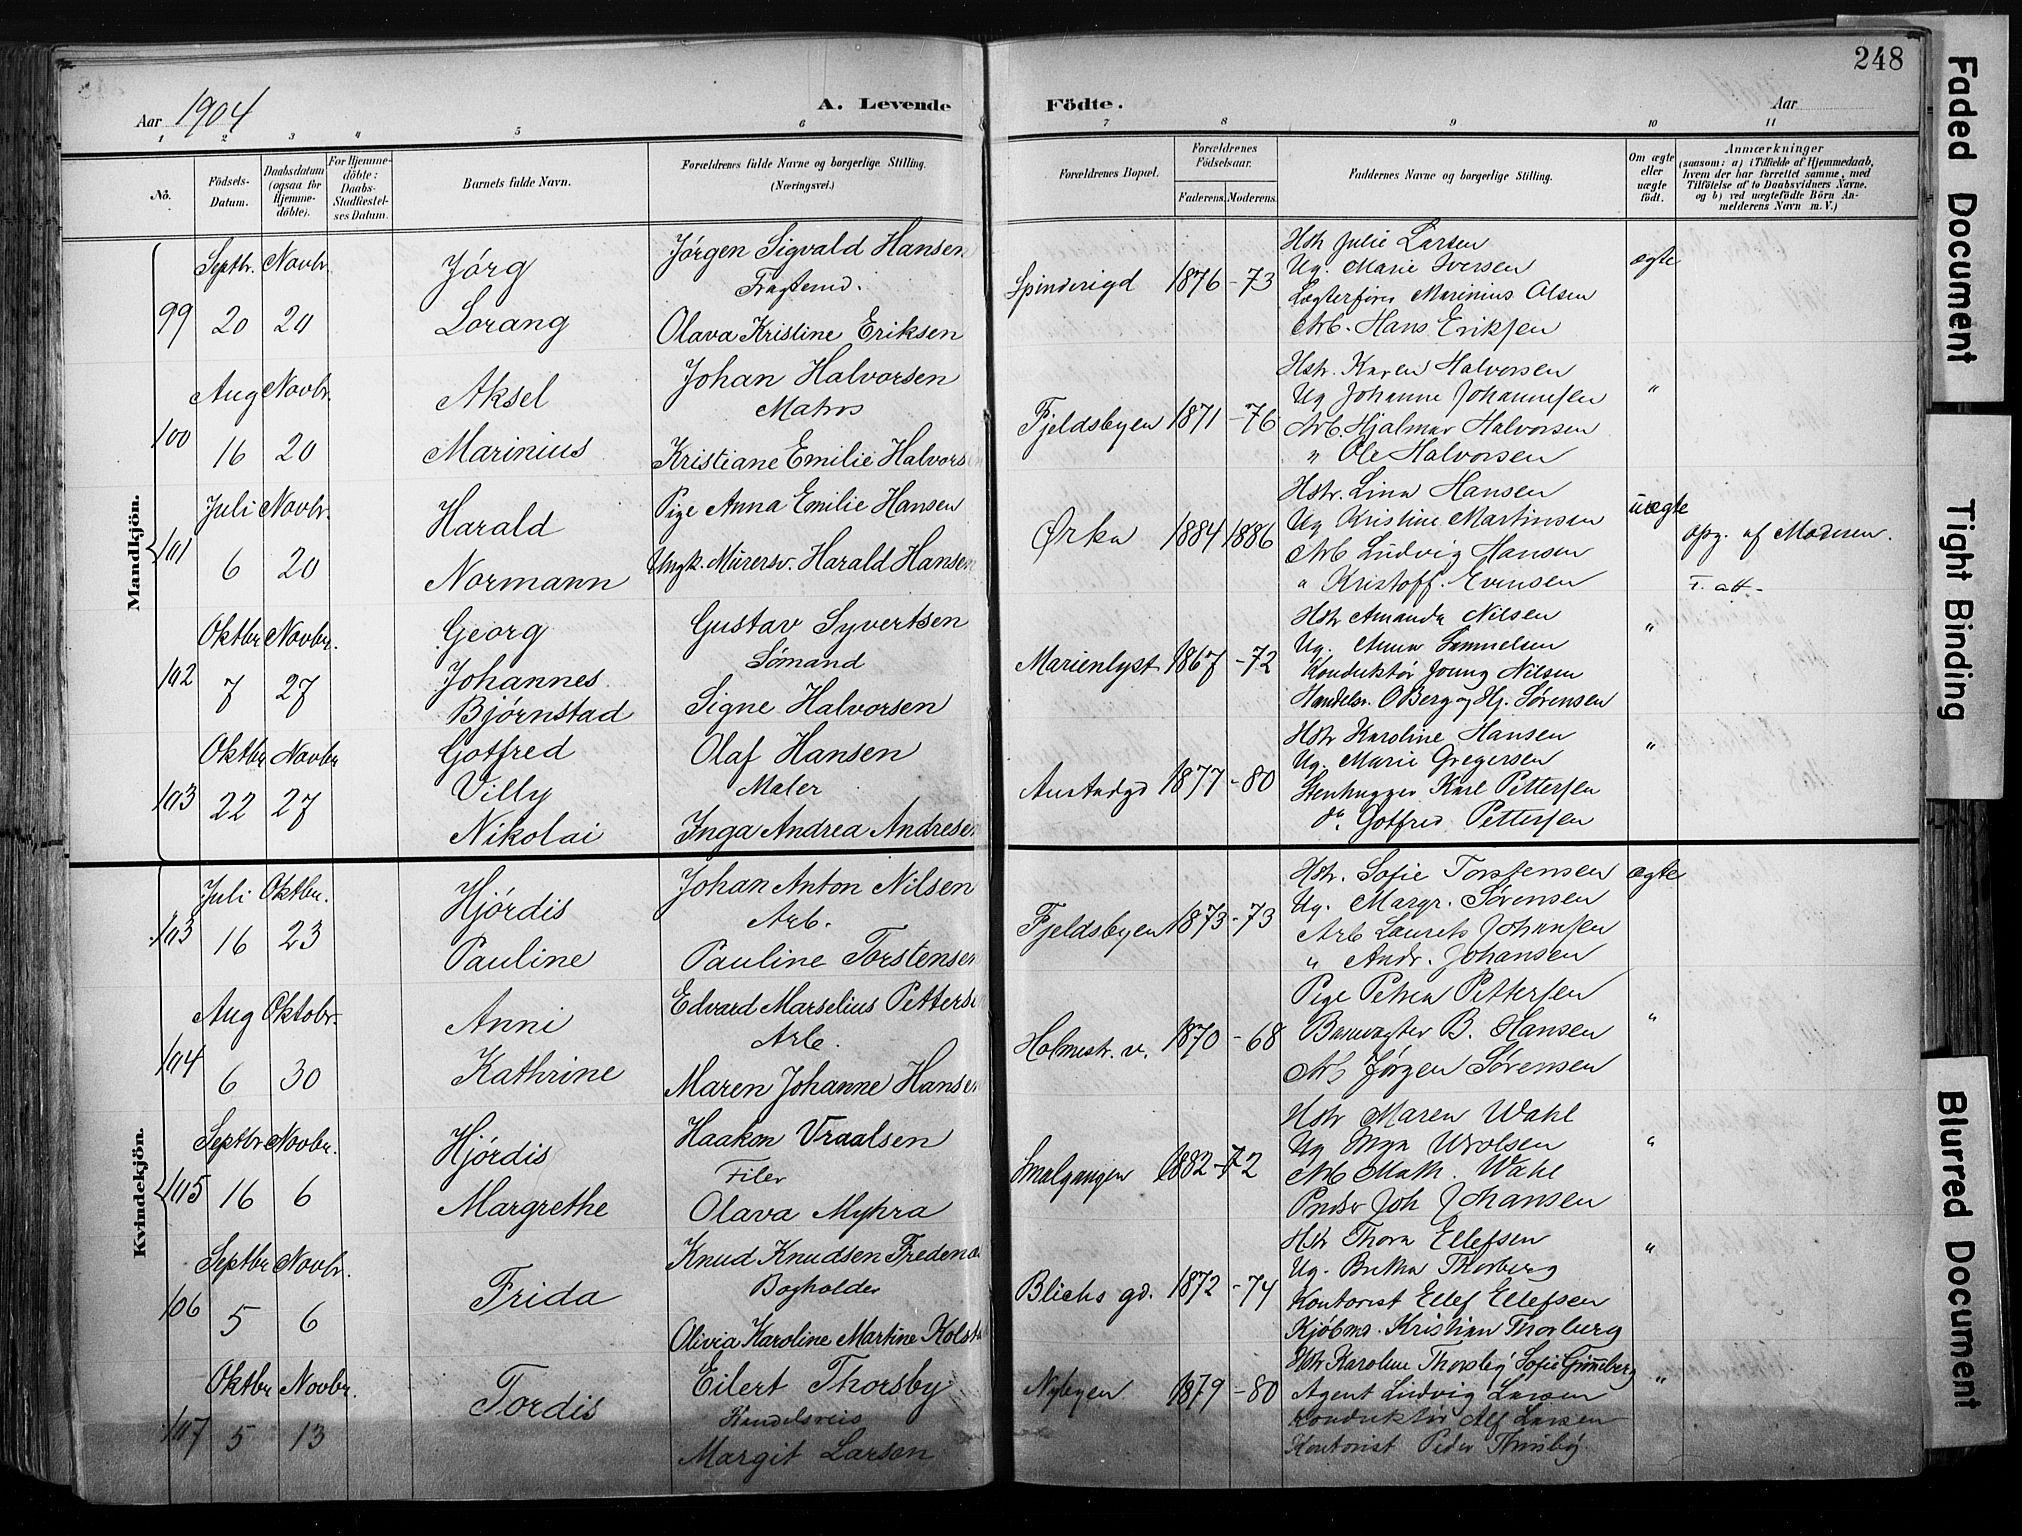 248
Aar 1904
A. Levende Födte.
Aar
1 2 3 4 5 6 7 8 9 10 11
No.
Födsels-Datum.
Daabsdatum (ogsaa för Hjemme-döbte).
For Hjemme-döbte: Daabs-Stadfæstel-ses Datum.
Barnets fulde Navn.
Forældrenes fulde Navne og borgerlige Stilling. (Næringsvei.)
Forældrenes Bopæl.
Forældrenes Födselsaar.
Faderens. Moderens.
Faddernes Navne og borgerlige Stilling.
Om ægte eller uægte födt.
Anmærkninger
(saasom: a) i Tilfælde af Hjemmedaab,
hvem der har forrettet samme, med
Tilföielse af to Daabsvidners Navne.
og b) ved uægtefödte Börn An-
melderens Navn m. V.)
Mandkjön.
99
Septbr. 20
Novbr. 20
Jørg
Lorang
Jørgen Sigvald Hansen
Fragtemd.
Olava Kristine Eriksen
Spinderigd
1876 -73
Hstr Julie Larsen
Ug. Marie Iversen
Lægterfører Marinius Olsen
Arb. Hans Eriksen
ægte
100
Aug 16
Novbr. 20
Aksel
Marinius
Johan Halvorsen
Matros
Kristiane Emilie Halvorsen
Fjeldsbyen
1871 -76
Hstr. Karen Halvorsen
Ug Johanne Johannesen
Arb. Hjalmar Halvorsen
" Ole Halvorsen
"
101
Juli 6
Novbr. 20
Harald
Normann
Pige Anna Emilie Hansen
Ungk. Murersv. Harald Hansen
Ørka
1884 1886
Hstr. Lina Hansen
Ug Kristine Martinsen
Arb Ludvig Hansen
" Kristoff. Evensen
uægte
opg. af Moderen.
F. att-
102
Oktbr 7
Novbr. 27
Georg
Johannes
Bjørnstad
Gustav Syvertsen
Sømand
Signe Halvorsen
Marienlyst
1867 -72
Hstr Amanda Nilsen
Ug. Anna Samuelsen
Konduktør Joung Nilsen
Handelsr. O Berg og Hj. Sørensen
"
103
Oktbr 22
Novbr 27
Gotfred
Villy
Nikolai
Olaf Hansen
Maler
Inga Andrea Andresen
1877 -80
Hstr Karoline Hansen
Ug. Marie Gregersen
Stenhugger Karl Pettersen
do. Gotfred Pettersen
"
Kvindekjön.
103
Juli 16
Oktbr. 23
Hjørdis
Pauline
Johan Anton Nilsen
Arb.
Pauline Torstensen
Fjeldsbyen
1873 -73
Hstr. Sofie Torstensen
Ug. Margr. Sørensen
Arb Laurits Johansen
" Andr. Johansen
ægte
104
Aug 6
Oktobr. 30
Anni
Kathrine
Edvard Marselius Petters
Arb.
Maren Johanne Hansen
Holmestr. v.
1870 -68
Pige Petra Pettersen
Banevogter B. Hansen
Arb Jørgen Sørensen
"
105
Septbr 16
Novbr. 6
Hjørdis
Margrethe
Haakon Vraalsen
Filer
Olava Myhra
Smalgangen
1882 -72
Hstr Maren Wahl
Ug Wrolsen
Arb Math. Wahl
Joh Johansen
"
106
Septbr 5
Novbr. 6
Frida
Knud Knudsen Fredend
Bogholder
Olivia Karoline Martine Kolst
Blichs gd.
1872 -74
Hstr Thora Ellefsen
Ug. Thorberg
Kontorist Ellef Ellefsen
Kjøbmd. Kristian Thorberg
"
107
Oktbr 5
Novbr. 13
Tordis
Eilert Thorsby
Handelsreis
Margit Larsen
Nybyen
1879 -80
Hstr Karoline Thorsby Sofie Grønneberg
Agent Ludvig Larsen
Konduktør Alf Larsen
Kontorist Peder Thorsby
"
Faded Document
Tight Binding
Blurred Document